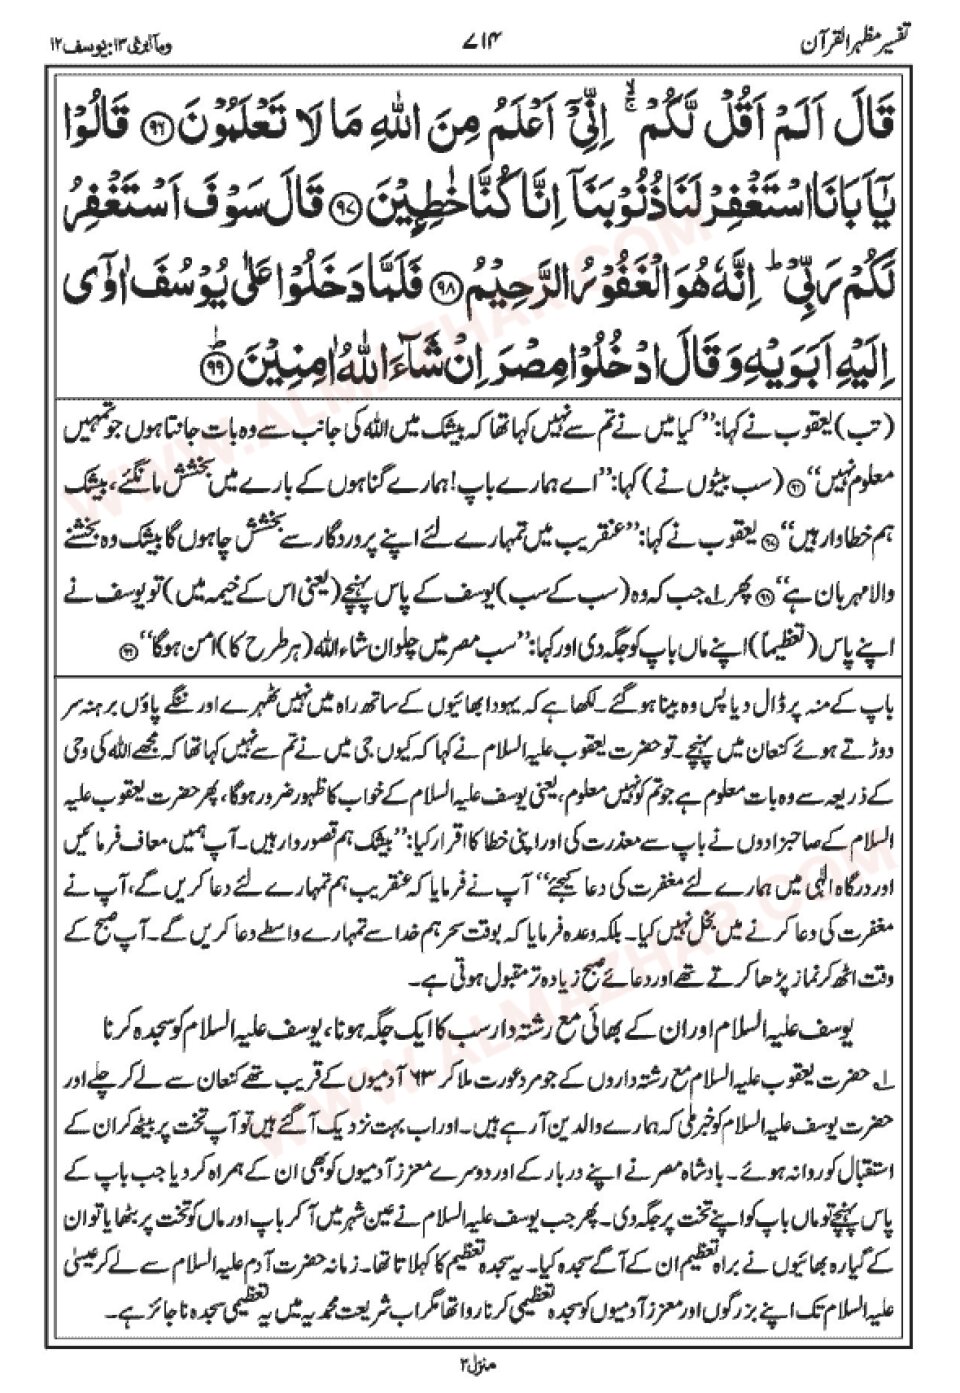 تفسیر مظہر القرآن
۷۱۴
وما ابرئ ۱۳: یوسف ۱۲
قَالَ اَلَمْ اَقُلْ لَّكُمْ ۙۚ اِنِّیْۤ اَعْلَمُ مِنَ اللّٰهِ مَا لَا تَعْلَمُوْنَ ﴿۹۶﴾ قَالُوْا
یٰۤاَبَانَا اسْتَغْفِرْ لَنَا ذُنُوْبَنَاۤ اِنَّا كُنَّا خٰطِـِٕیْنَ ﴿۹۷﴾ قَالَ سَوْفَ اَسْتَغْفِرُ
لَكُمْ رَبِّیْ ؕ اِنَّهٗ هُوَ الْغَفُوْرُ الرَّحِیْمُ ﴿۹۸﴾ فَلَمَّا دَخَلُوْا عَلٰی یُوْسُفَ اٰوٰۤی
اِلَیْهِ اَبَوَیْهِ وَ قَالَ ادْخُلُوْا مِصْرَ اِنْ شَآءَ اللّٰهُ اٰمِنِیْنَ ﴿۹۹﴾ؕ
(تب) یعقوب نے کہا: ’’کیا میں نے تم سے نہیں کہا تھا کہ بیشک میں اللہ کی جانب سے وہ بات جانتا ہوں جو تمہیں
معلوم نہیں‘‘ ﴿۹۶﴾ (سب بیٹوں نے) کہا: ’’اے ہمارے باپ! ہمارے گناہوں کے بارے میں بخشش مانگئے، بیشک
ہم خطاوار ہیں‘‘ ﴿۹۷﴾ یعقوب نے کہا: ’’عنقریب میں تمہارے لئے اپنے پروردگار سے بخشش چاہوں گا بیشک وہ بخشنے
والا مہربان ہے‘‘ ﴿۹۸﴾ پھر ۱؎ جب کہ وہ (سب کے سب) یوسف کے پاس پہنچے (یعنی اس کے خیمہ میں) تو یوسف نے
اپنے پاس (تعظیماً) اپنے ماں باپ کو جگہ دی اور کہا: ’’سب مصر میں چلو ان شاء اللہ (ہر طرح کا) امن ہوگا‘‘ ﴿۹۹﴾
باپ کے منہ پر ڈال دیا پس وہ بینا ہو گئے۔ لکھا ہے کہ یہودا بھائیوں کے ساتھ راہ میں نہیں ٹھہرے اور ننگے پاؤں برہنہ سر
دوڑتے ہوئے کنعان میں پہنچے۔ تو حضرت یعقوب علیہ السلام نے کہا کہ کیوں جی میں نے تم سے نہیں کہا تھا کہ مجھے اللہ کی وحی
کے ذریعہ سے وہ بات معلوم ہے جو تم کو نہیں معلوم، یعنی یوسف علیہ السلام کے خواب کا ظہور ضرور ہوگا، پھر حضرت یعقوب علیہ
السلام کے صاحبزادوں نے باپ سے معذرت کی اور اپنی خطا کا اقرار کیا: ’’بیشک ہم قصوردار ہیں۔ آپ ہمیں معاف فرمائیں
اور درگاہ الٰہی میں ہمارے لئے مغفرت کی دعا کیجئے‘‘ آپ نے فرمایا کہ عنقریب ہم تمہارے لئے دعا کریں گے، آپ نے
مغفرت کی دعا کرنے میں بخل نہیں کیا۔ بلکہ وعدہ فرمایا کہ بوقت سحر ہم خدا سے تمہارے واسطے دعا کریں گے۔ آپ صبح کے
وقت اٹھ کر نماز پڑھا کرتے تھے اور دعائے صبح زیادہ تر مقبول ہوتی ہے۔
یوسف علیہ السلام اور ان کے بھائی مع رشتہ دار سب کا ایک جگہ ہونا، یوسف علیہ السلام کو سجدہ کرنا
۱؎ حضرت یعقوب علیہ السلام مع رشتہ داروں کے جو مرد عورت ملا کر ۶۳ آدمیوں کے قریب تھے کنعان سے لے کر چلے اور
حضرت یوسف علیہ السلام کو خبر ملی کہ ہمارے والدین آرہے ہیں۔ اور اب بہت نزدیک آ گئے ہیں تو آپ تخت پر بیٹھ کر ان کے
استقبال کو روانہ ہوئے۔ بادشاہ مصر نے اپنے دربار کے اور دوسرے معزز آدمیوں کو بھی ان کے ہمراہ کر دیا جب باپ کے
پاس پہنچے تو ماں باپ کو اپنے تخت پر جگہ دی۔ پھر جب یوسف علیہ السلام نے عین شہر میں آ کر باپ اور ماں کو تخت پر بٹھایا تو ان
کے گیارہ بھائیوں نے براہ تعظیم ان کے آگے سجدہ کیا۔ یہ سجدہ تعظیم کا کہلاتا تھا۔ زمانہ حضرت آدم علیہ السلام سے لے کر عیسیٰ
علیہ السلام تک اپنے بزرگوں اور معزز آدمیوں کو سجدہ تعظیمی کرنا روا تھا مگر اب شریعت محمدیہ میں یہ تعظیمی سجدہ ناجائز ہے۔
منزل ۳
WWW.ALMAZHAR.COM
WWW.ALMAZHAR.COM